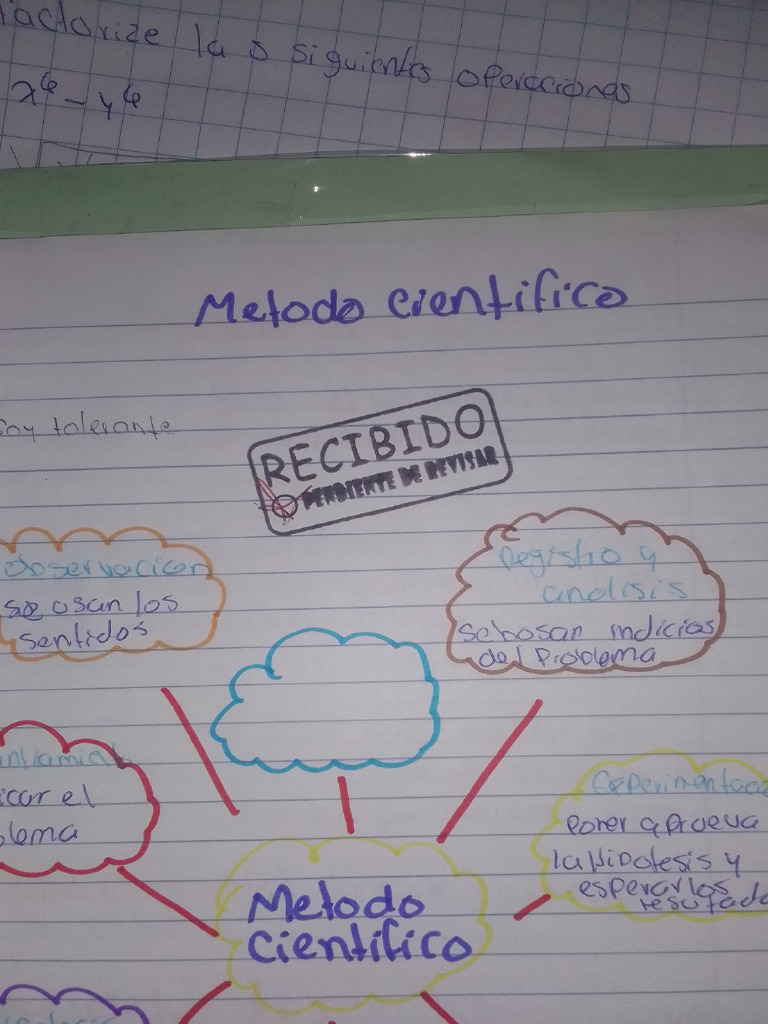 factorize las siguientes operaciones
x⁶ - y⁶
Metodo cientifico
Soy tolerante
RECIBIDO
PENDIENTE DE REVISAR
Observacion
se usan los
sentidos
Registro y
analisis
se bosan indicios
del Problema
ntiamient
icar el
blema
Experimentac
Poner a prueva
la Hipotesis y
esperar los
resultado
Metodo
cientifico